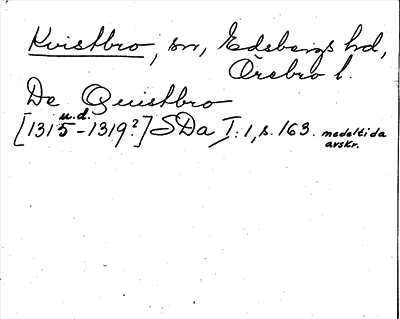 Kvistbro, sn, Edsbergs hd,
Örebro l.
De Quistbro
u.d.
[1315-1319?] SDa I:1, s. 163. medeltida
avskr.